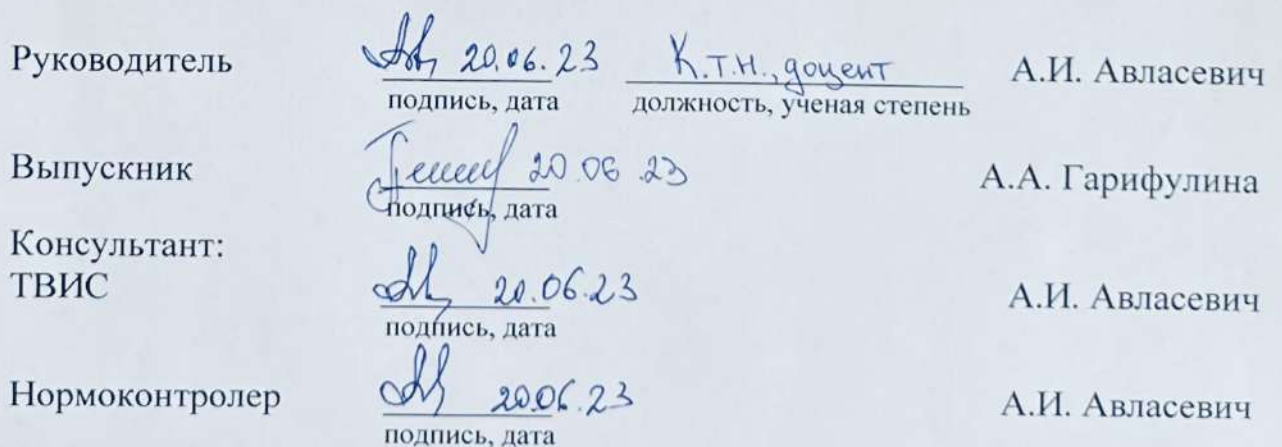 Руководитель 20.06.23 К.т.н., доцент А.И. Авласевич
подпись, дата должность, ученая степень
Выпускник 20.06.23 А.А. Гарифулина
подпись, дата
Консультант:
ТВИС 20.06.23 А.И. Авласевич
подпись, дата
Нормоконтролер 20.06.23 А.И. Авласевич
подпись, дата